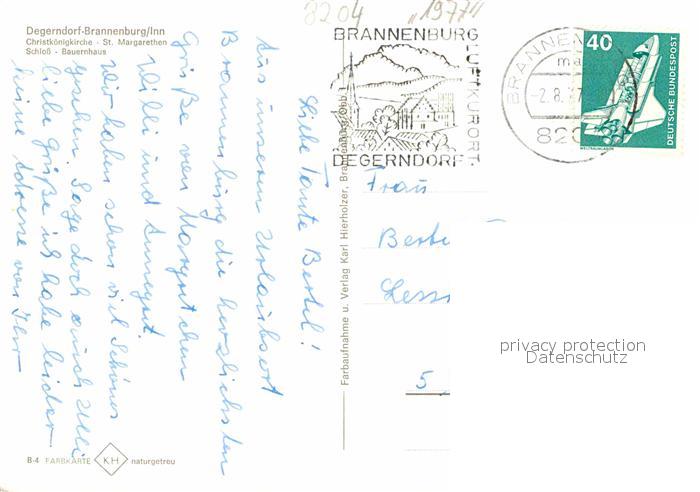 Degerndorf-Brannenburg/Inn
Christkönigkirche - St. Margarethen
Schloß - Bauernhaus
8204 "1977"
BRANNENBURG
LUFTKURORT
DEGERNDORF
BRANNEN
-2.8.77
820
40
DEUTSCHE BUNDESPOST
WELTRAUMLABOR
Liebe Tante Bertel!
Aus unserem Urlaubsort
Brannenburg die herzlichsten
Grüße von Margretchen
Willi und Annegret.
Wir haben schon viel Schönes
gesehen. Sage doch auch Ulli
liebe Grüße ich habe leider
keine Adresse von Ihr
Farbaufnahme u. Verlag Karl Hierholzer, Brannenburg/Obb.
Frau
Berte
Less
5
privacy protection
Datenschutz
B-4 FARBKARTE KH naturgetreu